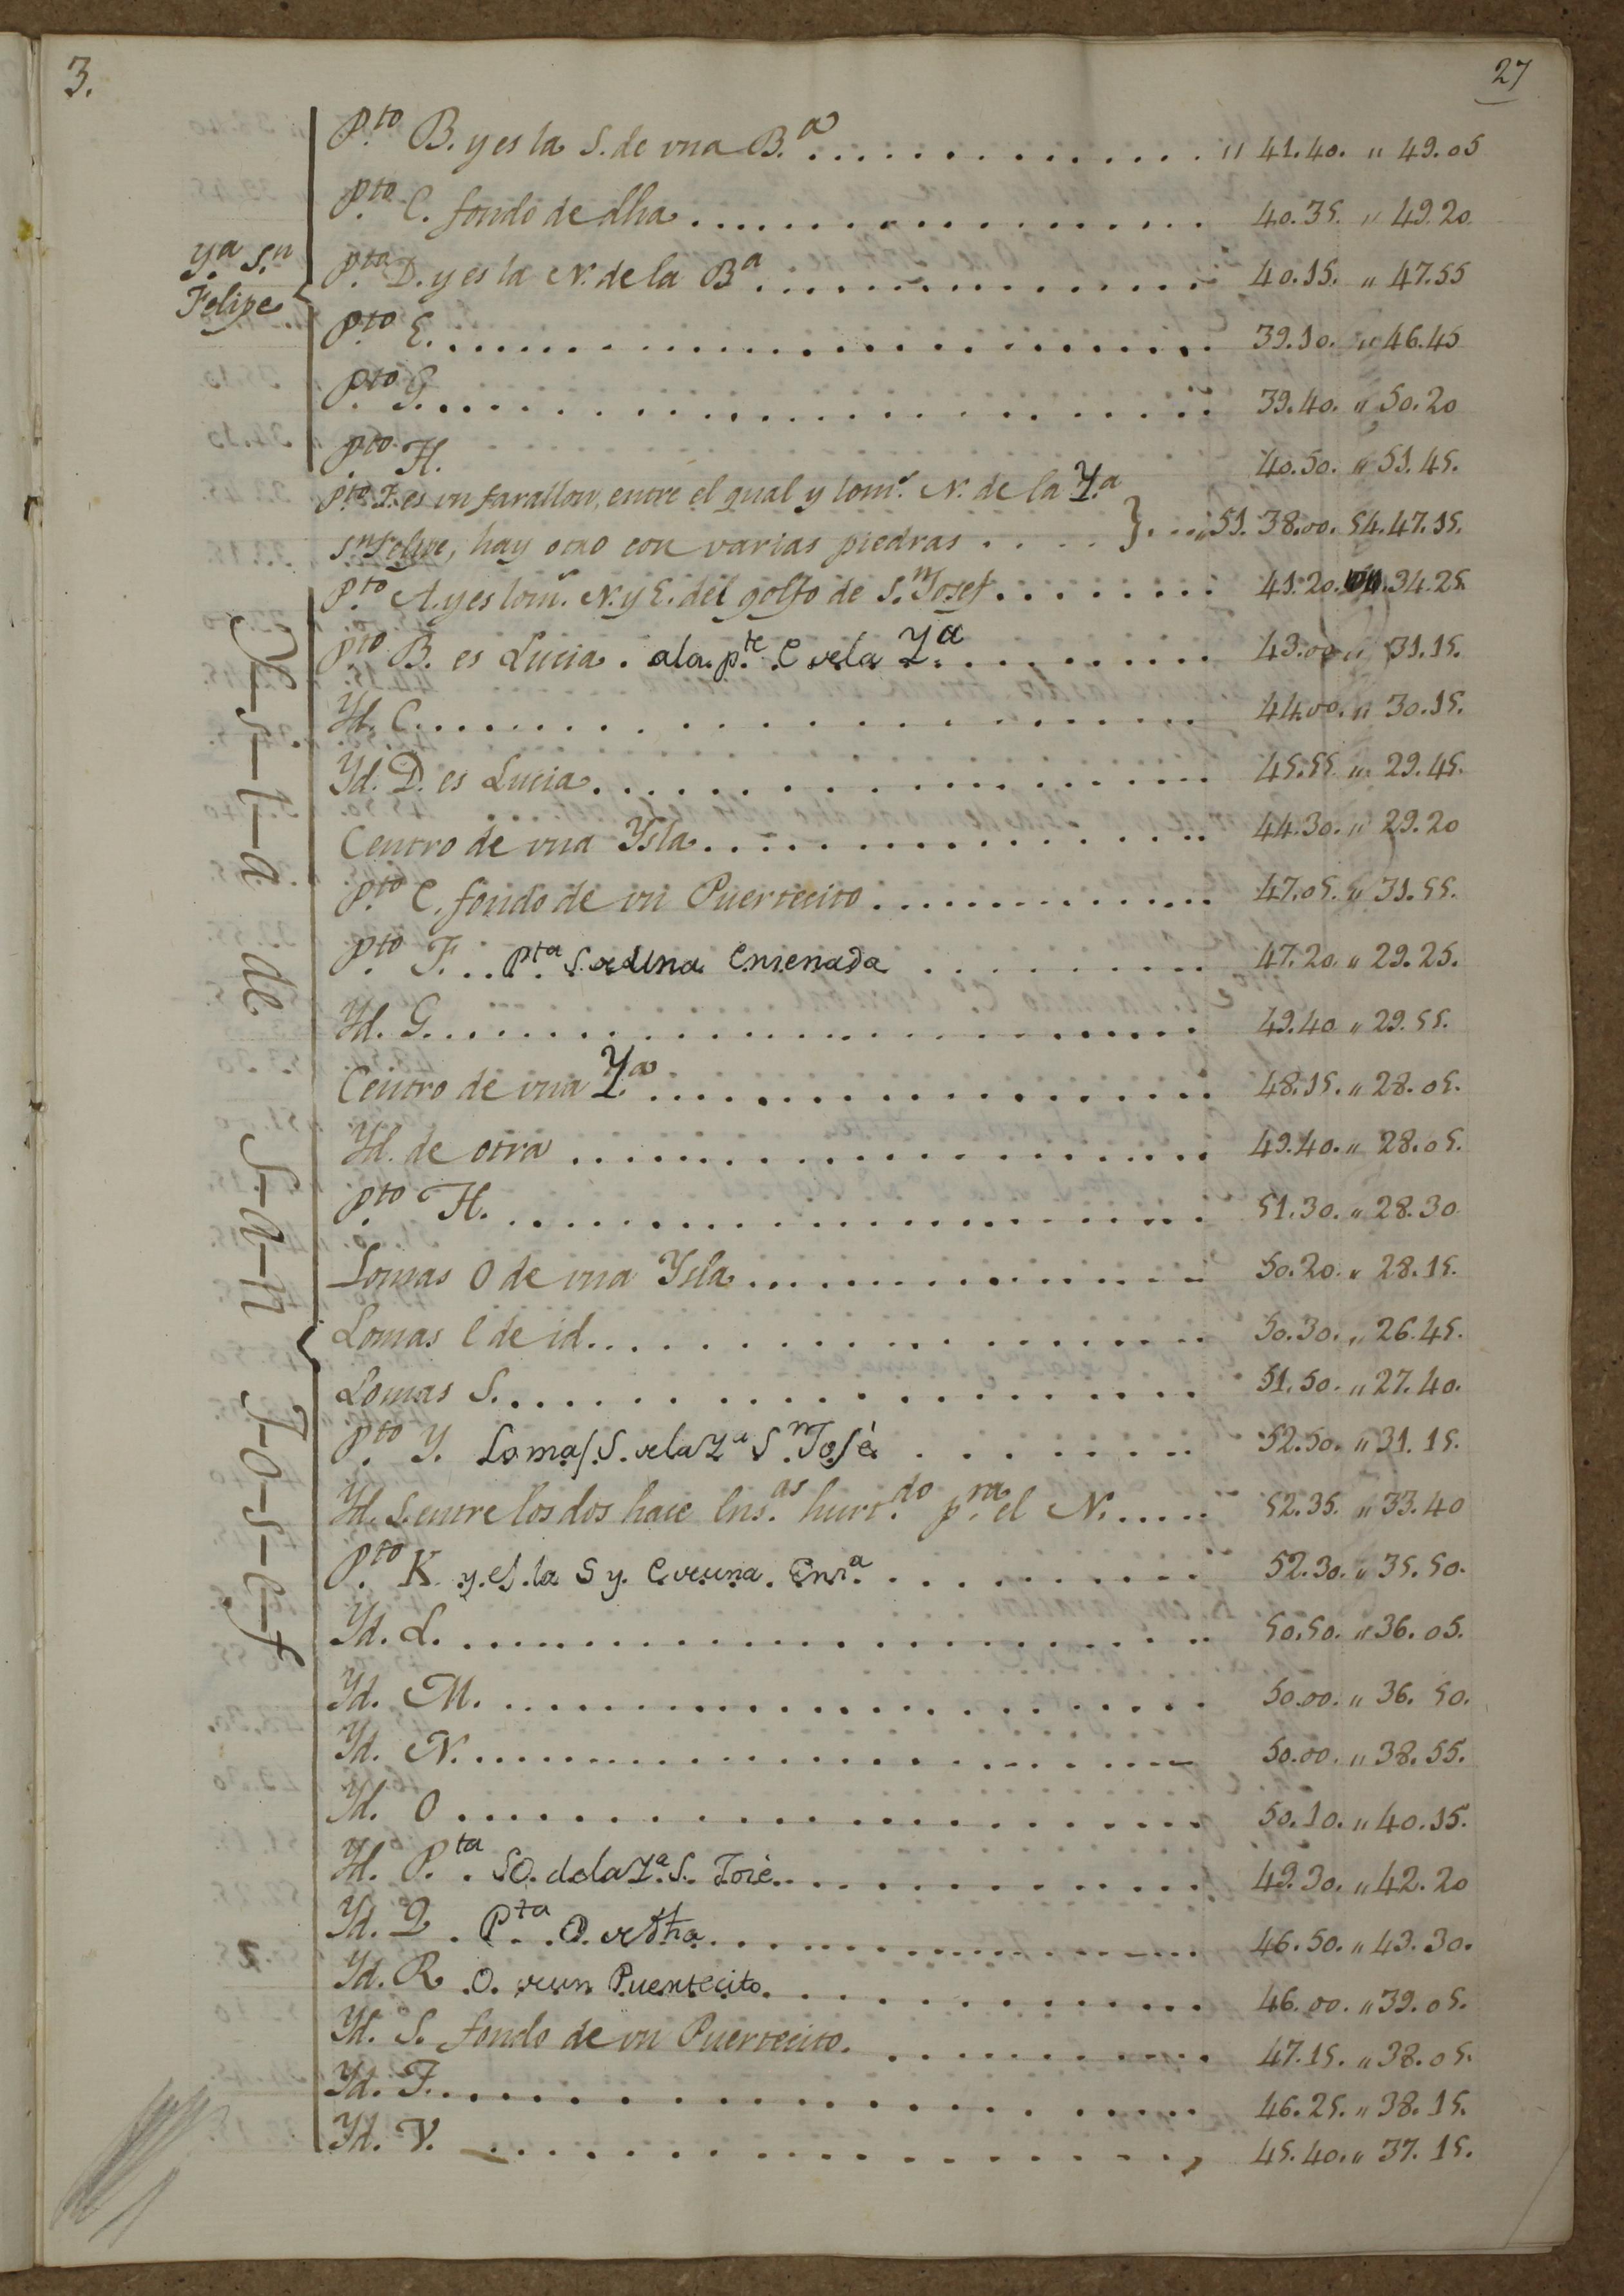 3.
27
Pto B. y es la S. de vna B.a .............. " 41.40. " 49.05
Pto C. fondo de dha ................. 40.35. " 49.20
Ya Sn
Felipe
Pta D. y es la N. de la Ba ............... 40.15. " 47.55
Pto E. .......................... 39.10. " 46.45
Pto G. .......................... 39.40. " 50.20
Pto H. 40.50. " 51.45.
Pto I. es vn farallon, entre el qual y lom.s N. de la Y.a
Sn Felipe, hay otro con varias piedras .... } ... 51. 38.00. 54. 47.15.
Pto A. y es lom.s N. y E. del golfo de S.n Josef ........ 41.20. 34.25.
Pto B. es Lucia. a la p.te E de la Y.a .......... 43.00 " 31.15.
Yd. C. ...................... 44.00. " 30.15.
Yd. D. es Lucia .................... 45.55. " 29.45.
Centro de vna Ysla ................ 44.30. " 29.20
Pto E. fondo de vn Puertecito .............. 47.05. " 31.55.
Pto F. .. Pta S. de Una Ensenada .......... 47.20. " 29.25.
Yd. G. ....................... 49.40 " 29.55.
Centro de vna Y.a .................. 48.15. " 28.05.
Yd. de otra ...................... 49.40. " 28.05.
Pto H. ........................ 51.30. " 28.30
Lomas O de vna Ysla ............... 50.20. " 28.15.
Lomas E de id. .................... 50.30. " 26.45.
Lomas S. ..................... 51.50. " 27.40.
Pto Y. Lomas S. de la Ya S.n José ........ 52.50. " 31.15.
Yd. S. entre los dos hace Ens.as hund.do p.ra el N. ..... 52.35. " 33.40
Pto K. y. es. la S y. E de una. Ens.a ........... 52.30. " 35.50.
Yd. L. ....................... 50.50. " 36.05.
Yd. M. ...................... 50.00. " 36.50.
Yd. N. ....................... 50.00. " 38.55.
Yd. O ....................... 50.10. " 40.15.
Yd. P.ta . SO. de la Y.a S. José. ............ 49.30. " 42.20
Yd. Q . Pta . O. de dha ................ 46.50. " 43.30.
Yd. R. O. de un Puertecito ............. 46.00. " 39.05.
Yd. S. fondo de vn Puertecito. ........... 47.15. " 38.05.
Yd. T. .................... 46.25. " 38.15.
Yd. V. .................... 45.40. " 37.15.
Y-s-l-a de S-a-n J-o-s-e-f